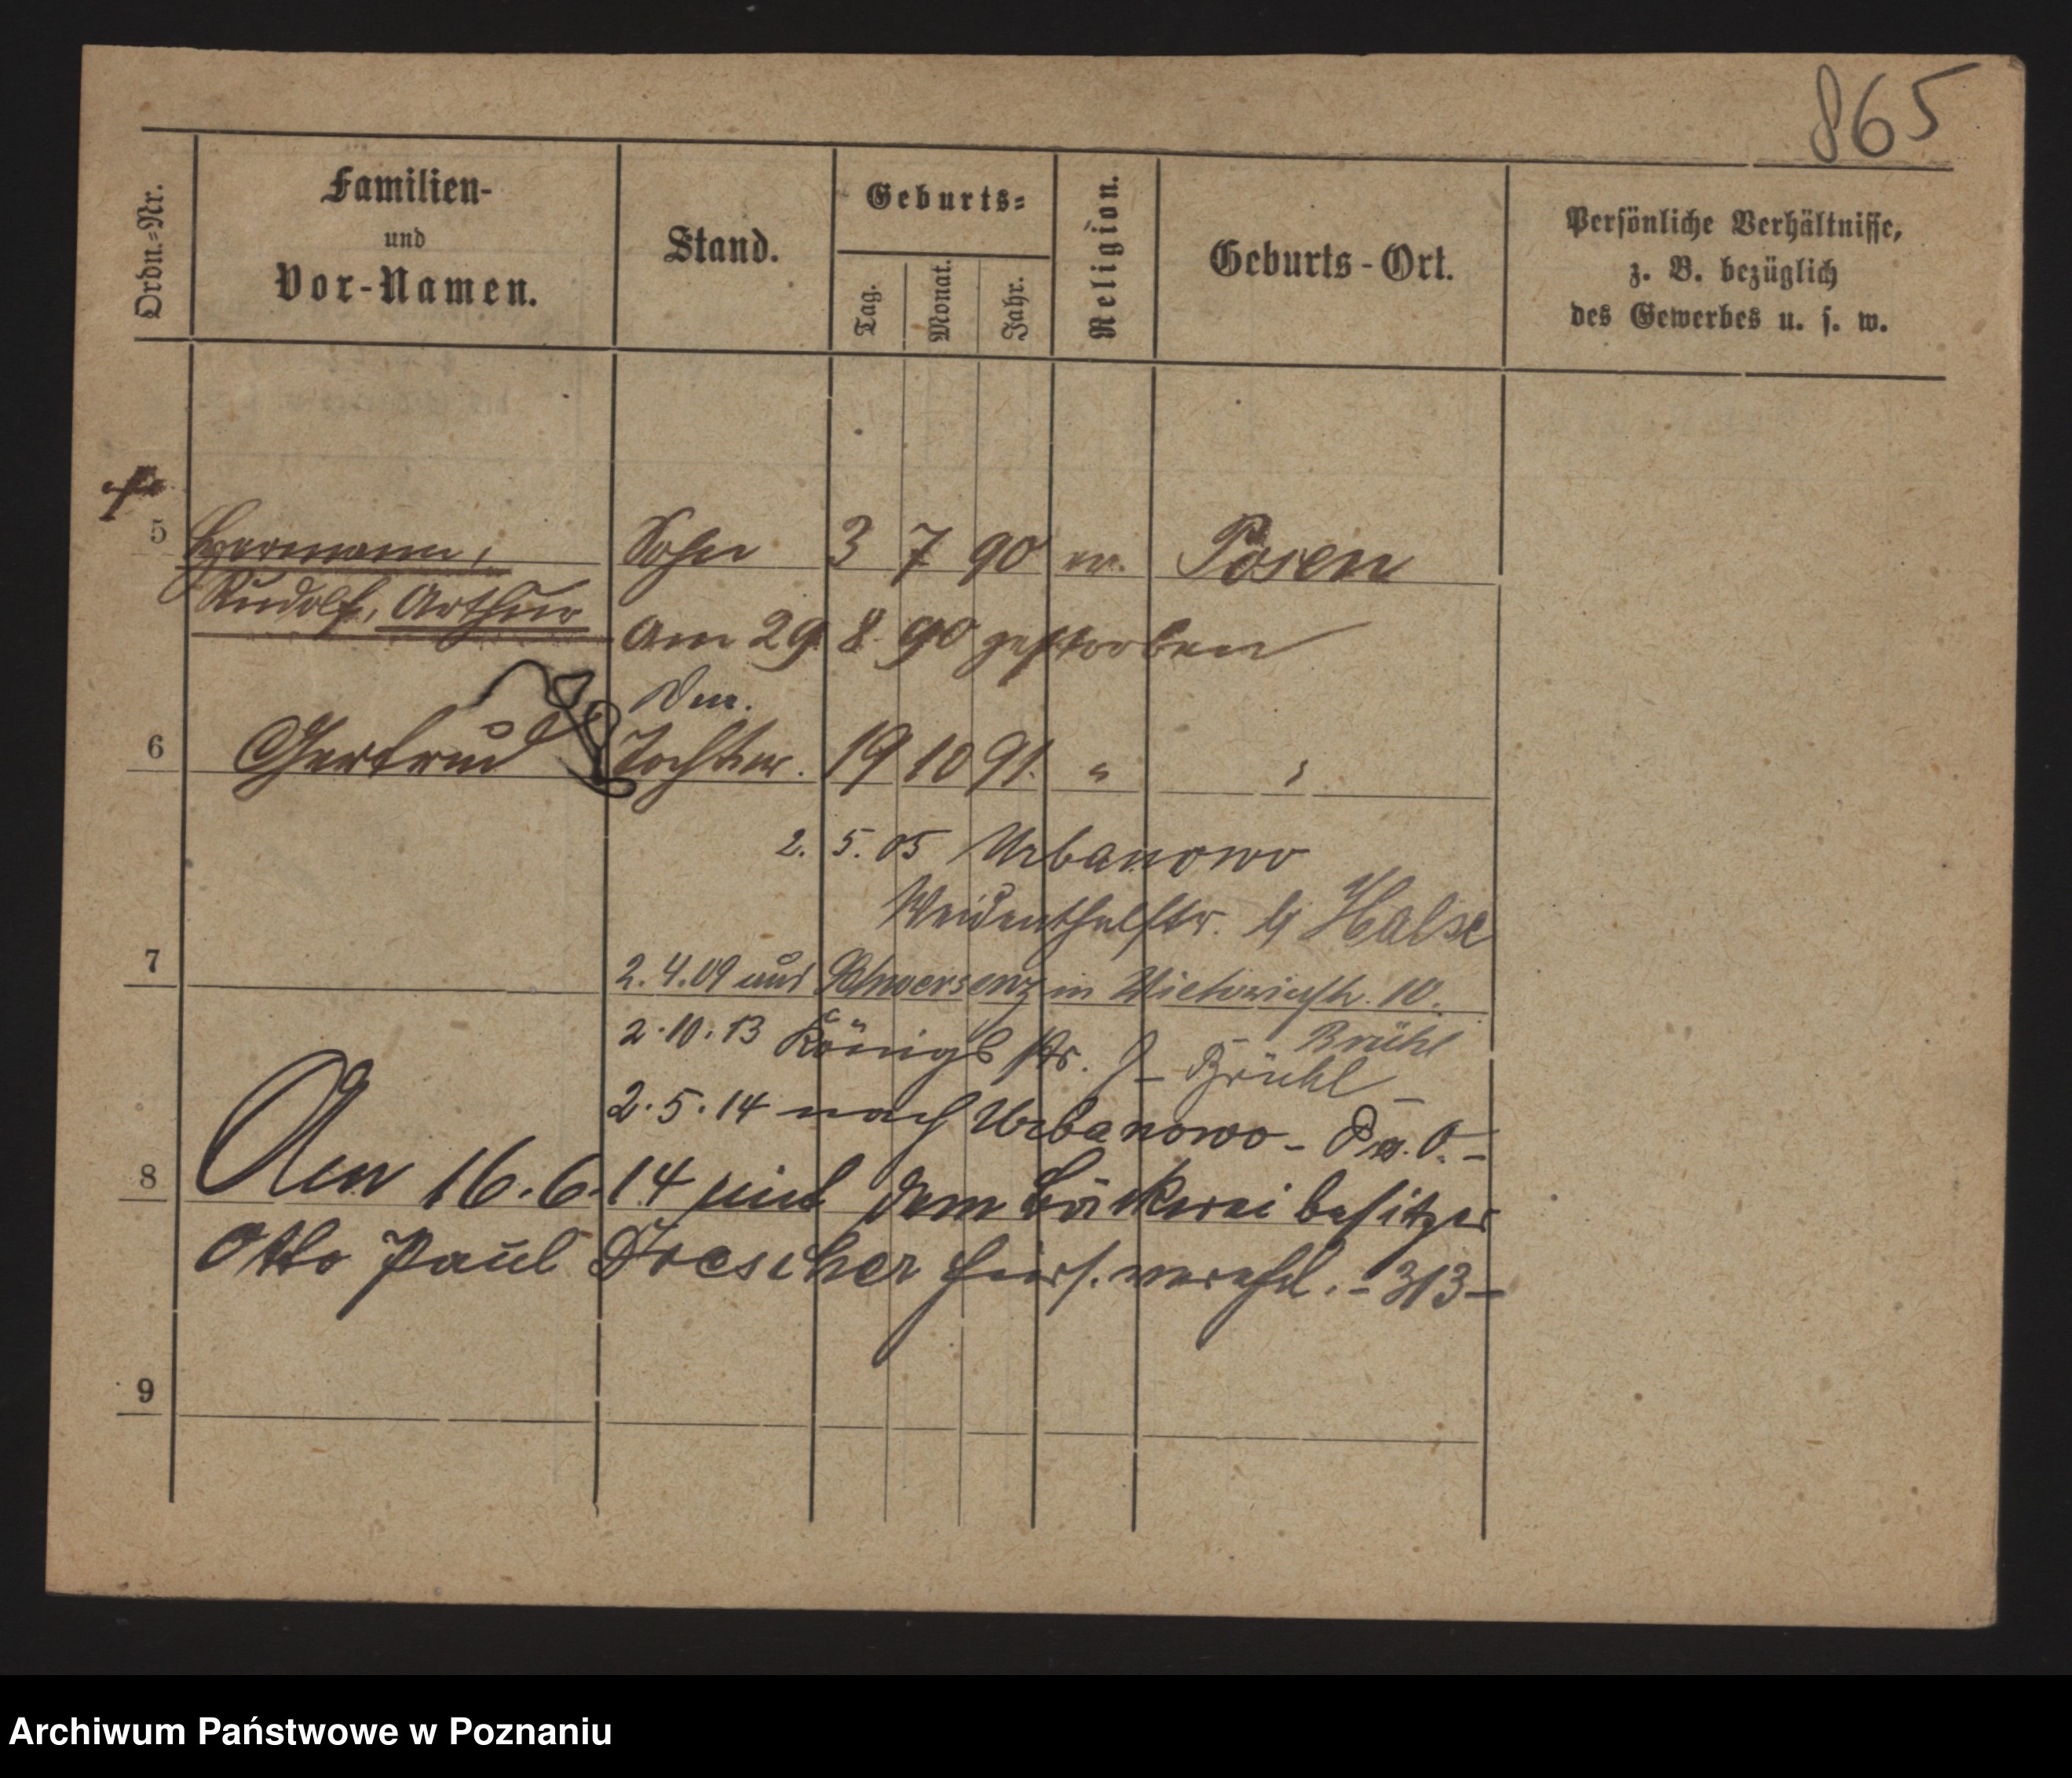 865
Ordn.=Nr.
Familien-
und
Vor-Namen.
Stand.
Geburts=
Tag.
Monat.
Jahr.
Religion.
Geburts-Ort.
Persönliche Verhältnisse,
z. B. bezüglich
des Gewerbes u. s. w.
5 Hermann, Sohn 3 7 90 ev. Posen
Rudolf, Arthur
am 29 8. 90 gestorben
6 Gertrud Tochter. 19 10 91. " "
2. 5. 05 Urbanowo
Weidenthalstr. bei Halse
7
2.4.09 aus Schwersenz in Victoriastr. 10.
2.10.13 Königsstr. 9 - Brühl -
Brühl
2.5.14 nach Urbanowo - Pw. O. -
8
Am 16.6.14 mit dem Bäckereibesitzer
Otto Paul Drescher hiers. verehel. - 313 -
9
Archiwum Państwowe w Poznaniu